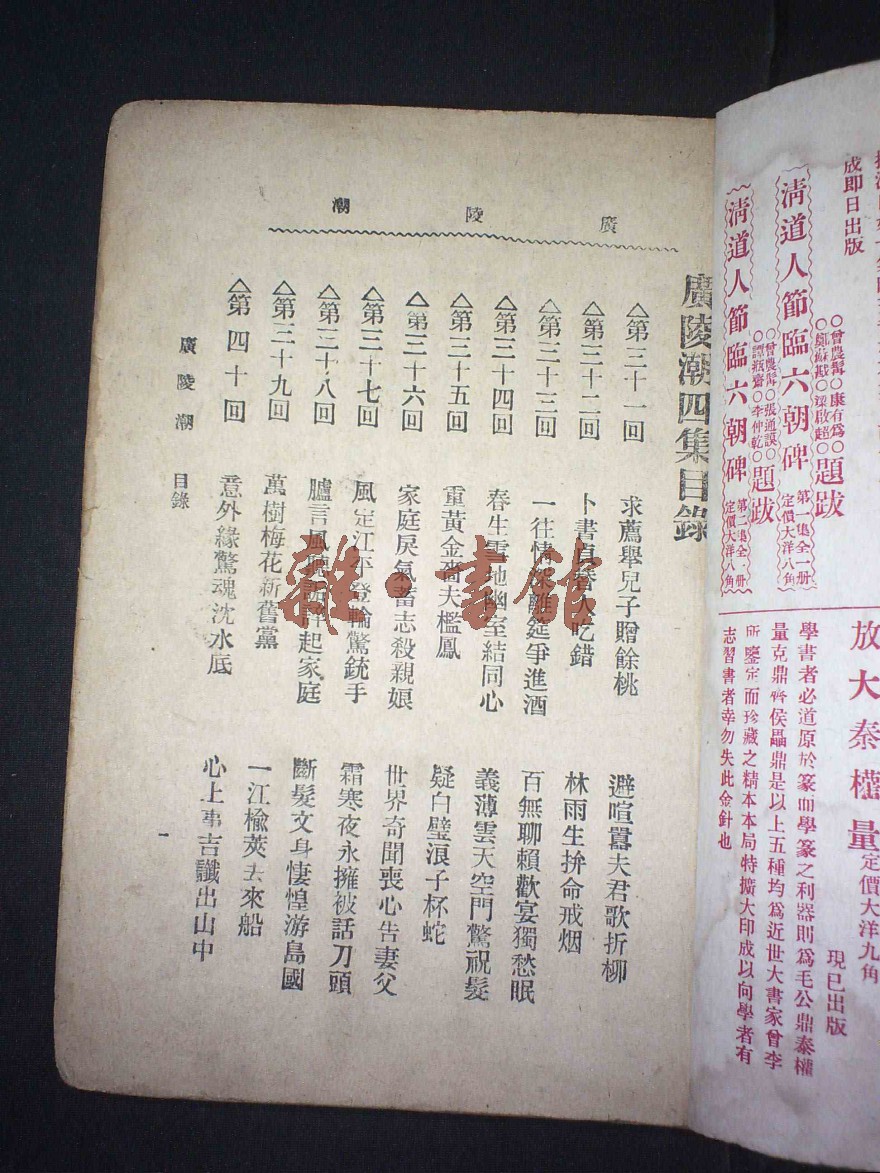 廣陵潮
廣陵潮四集目錄
△第三十一回 求薦舉兒子贈餘桃 避喧囂夫君歌折柳
△第三十二回 卜書貞替人吃錯 林雨生拚命戒烟
△第三十三回 一往情深離筵爭進酒 百無聊賴歡宴獨愁眠
△第三十四回 春生雪地幽室結同心 義薄雲天空門驚祝髮
△第三十五回 重黃金嗇夫檻鳳 疑白璧浪子杯蛇
△第三十六回 家庭戾氣蓄志殺親娘 世界奇聞喪心告妻父
△第三十七回 風定江平登輪驚銃手 霜寒夜永擁被話刀頭
△第三十八回 臚言風聽訴訐起家庭 斷髮文身悽惶游島國
△第三十九回 萬樹梅花新舊黨 一江楡莢去來船
△第四十回 意外緣驚魂沈水底 心上事吉讖出山中
廣陵潮 目錄 一
雜·書館
成即日出版
○曾農髯○康有爲○
○鄭蘇戡○梁啟超○題跋
清道人節臨六朝碑 第一集全一册 定價大洋八角
○曾農髯○張通謨○
○譚瓶齋○李仲乾○題跋
清道人節臨六朝碑 第二集全一册 定價大洋八角
放大秦權量 定價大洋九角
現已出版
學書者必道原於篆而學篆之利器則爲毛公鼎秦權
量克鼎齊侯罍鼎是以上五種均爲近世大書家曾李
所鑒定而珍藏之精本本局特擴大印成以向學者有
志習書者幸勿失此金針也